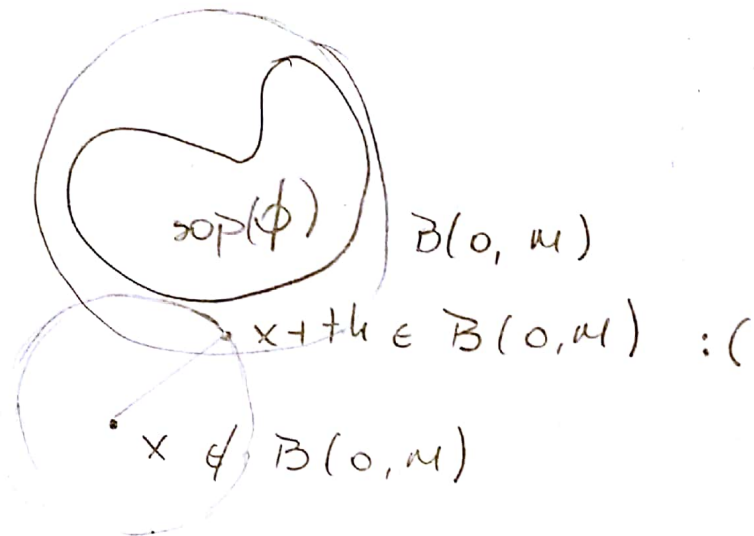 sop(ϕ)
B(0, M)
x+th ∈ B(0,M) :(
x ∉ B(0,M)